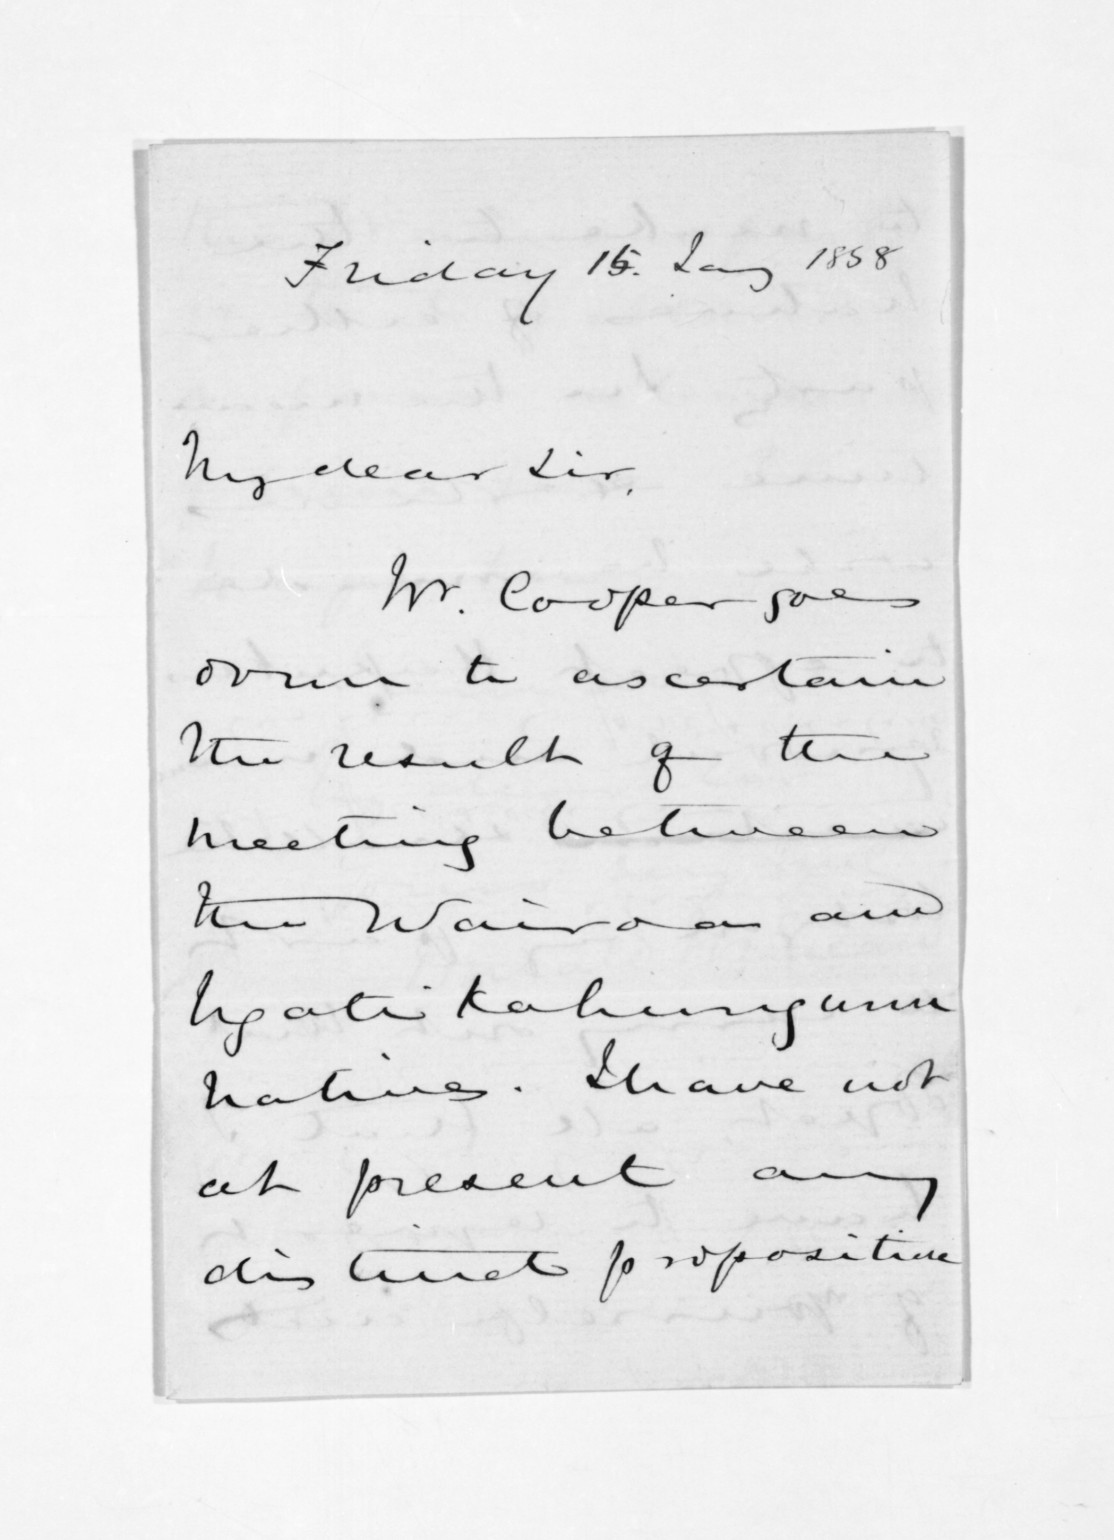 Friday 15. Jany 1858
My dear Sir,
Mr. Cooper goes
down to ascertain
the result of the
meeting between
the Wairoa and
Ngatikahungunu
Natives. I have not
at present any
distinct proposition